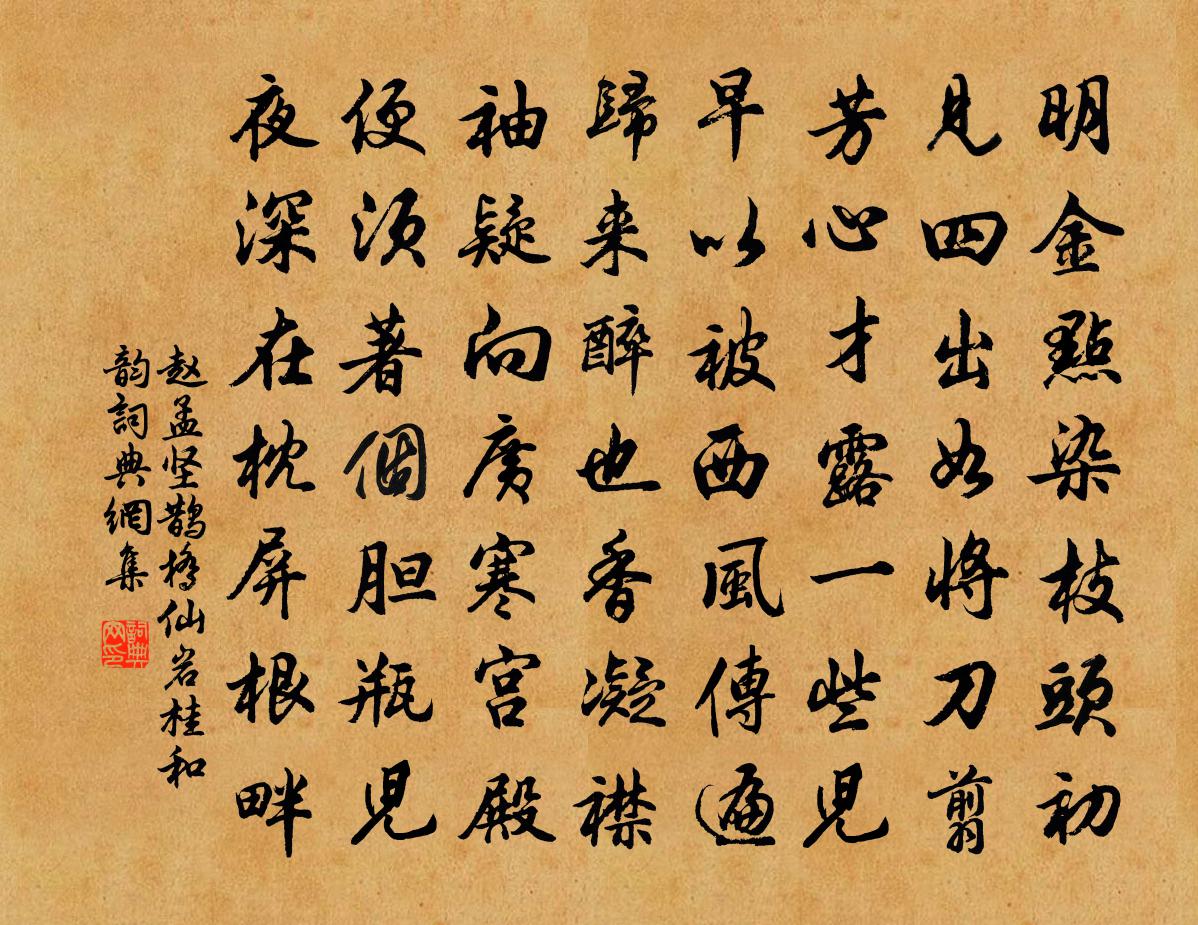 明金點染枝頭初
見四出如將刀剪
芳心才露一些兒
早以被西風傳遍
歸来醉也香凝襟
袖疑向廣寒宮殿
便須著個胆瓶兒
夜深在枕屏根畔
赵孟坚鹊橋仙岩桂和
韵詞典網集
詞典
网印